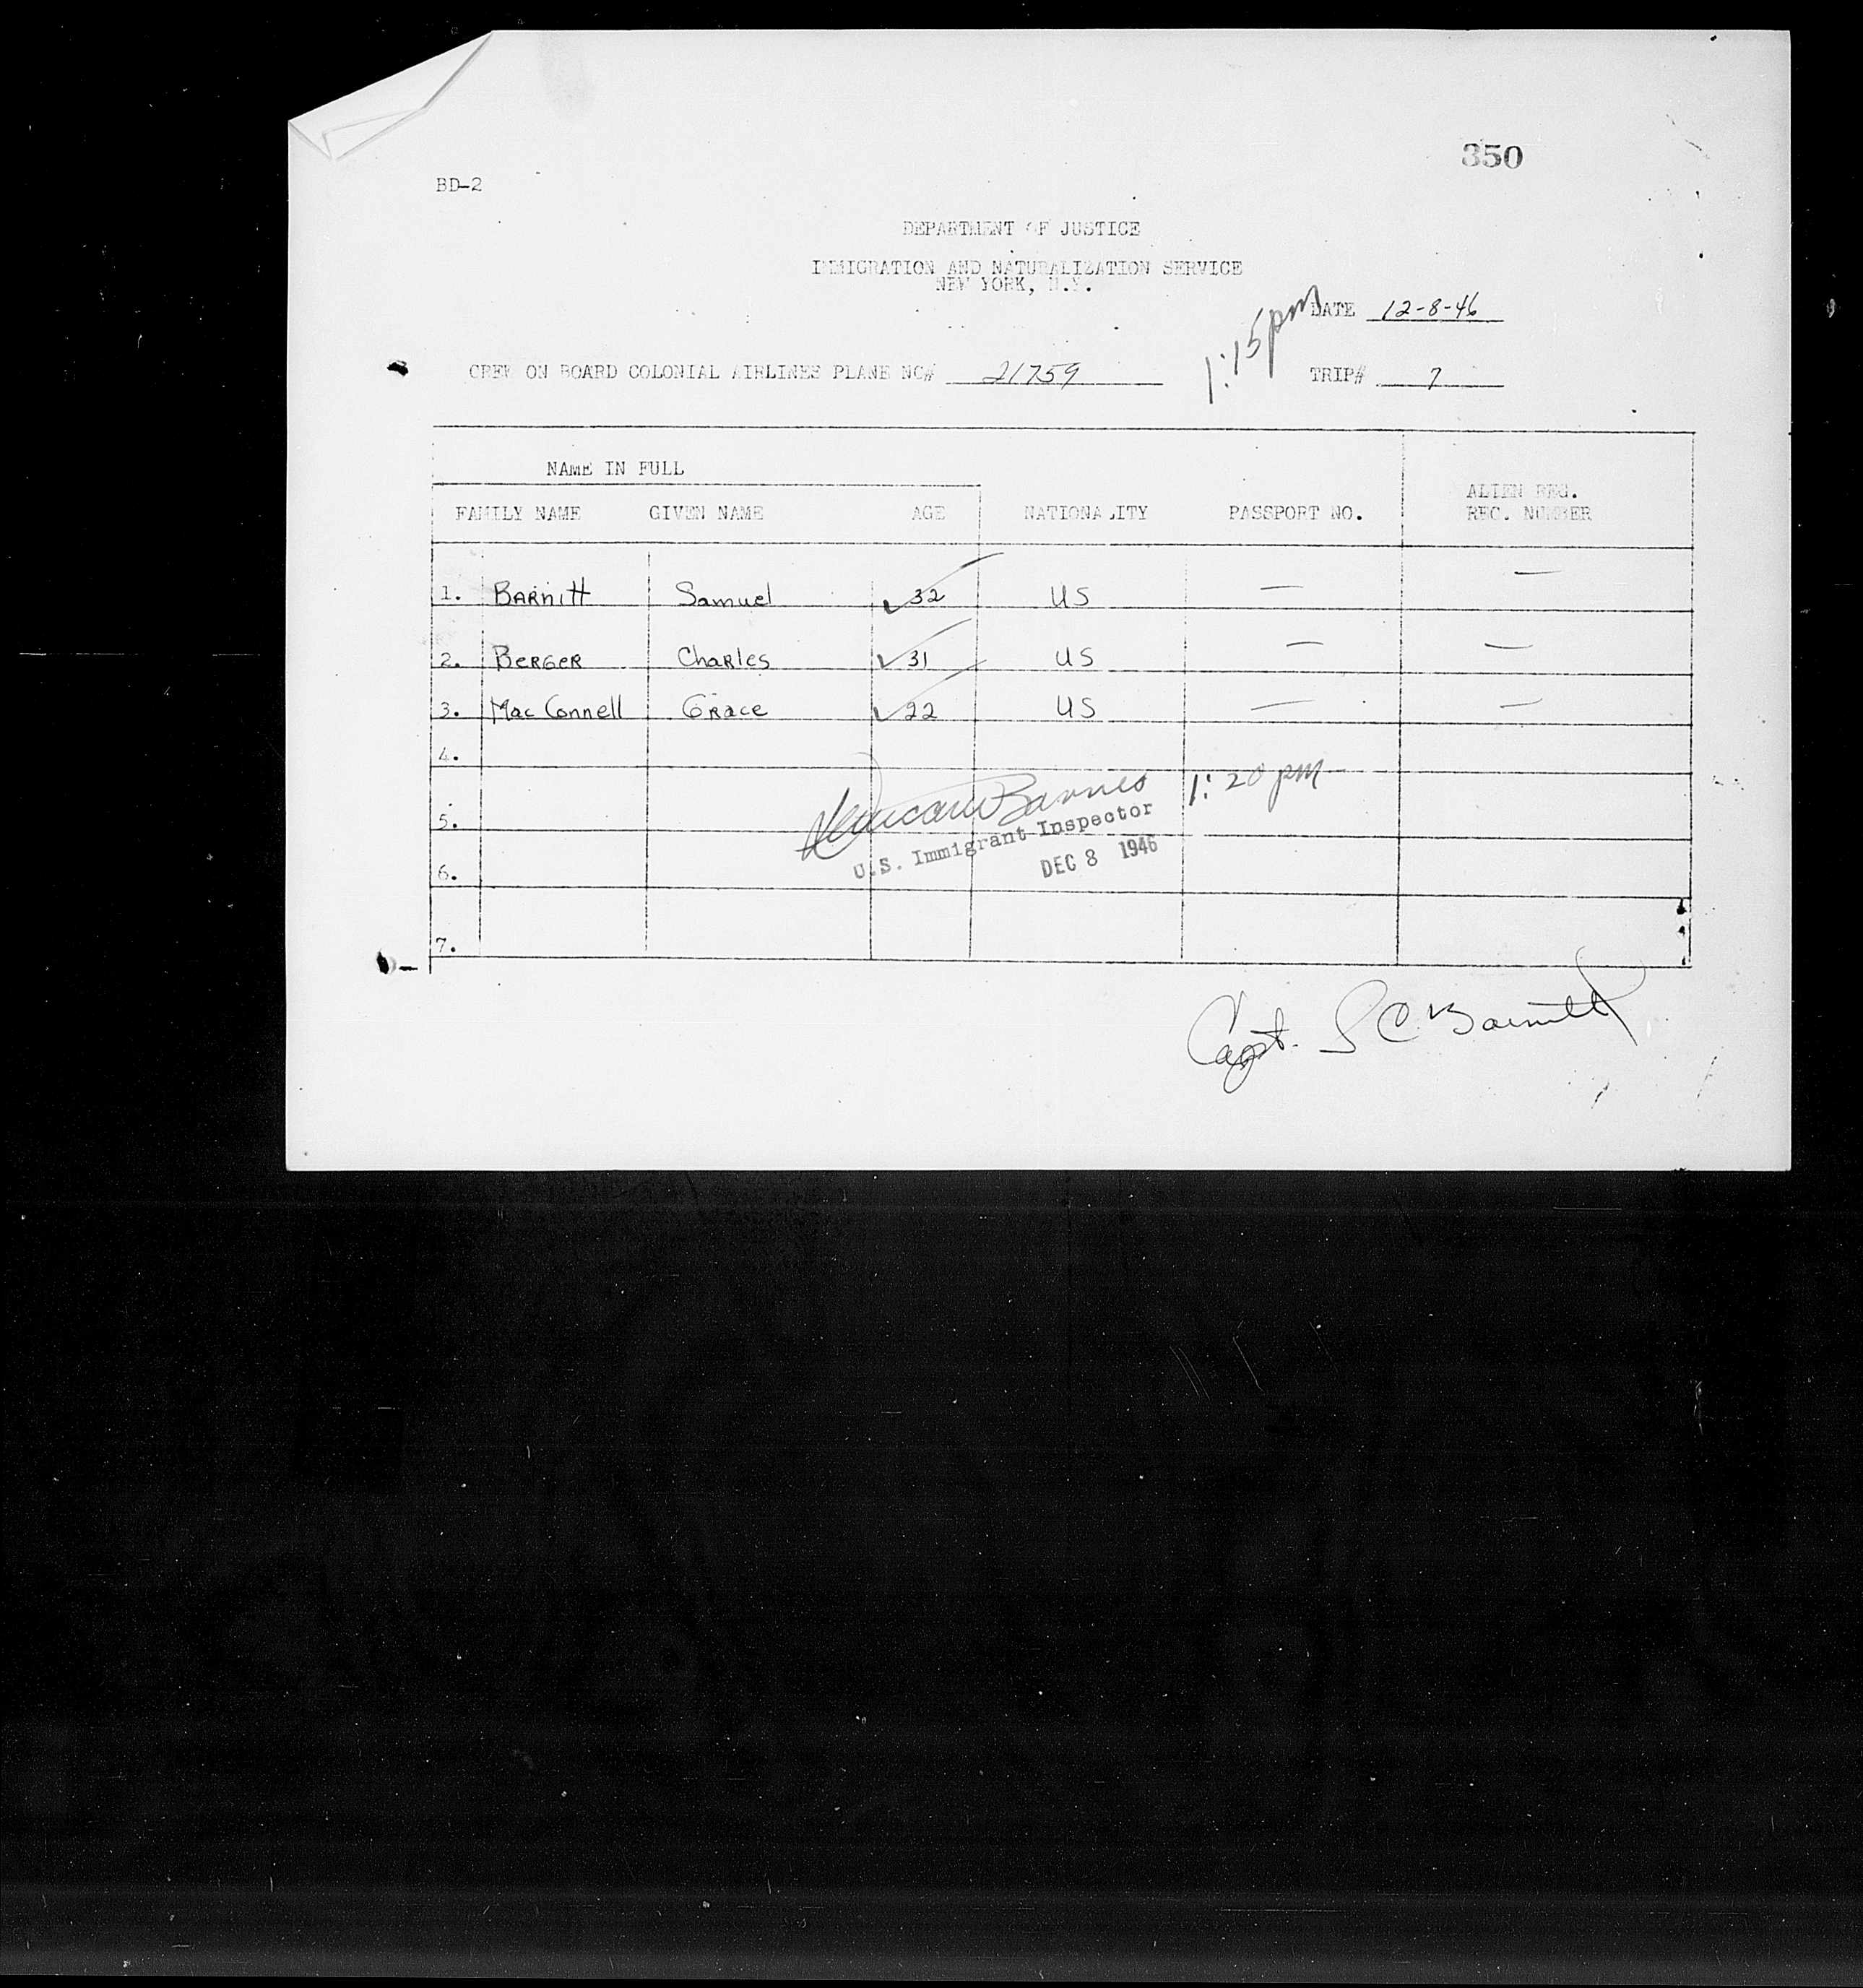 350
BD-2
DEPARTMENT OF JUSTICE
IMMIGRATION AND NATURALIZATION SERVICE
NEW YORK, N.Y.
1:15pm
DATE 12-8-46
CREW ON BOARD COLONIAL AIRLINES PLANE NO# 21759
TRIP# 7
NAME IN FULL
FAMILY NAME GIVEN NAME AGE NATIONALITY PASSPORT NO. ALIEN REG. REC. NUMBER
1. BARNITT Samuel ✓32 US — —
2. BERGER Charles ✓31 US — —
3. MacConnell Grace ✓22 US — —
4.
Barnes 1:20 pm
5.
U.S. Immigrant Inspector
6.
DEC 8 1946
7.
Capt. S C Barnitt